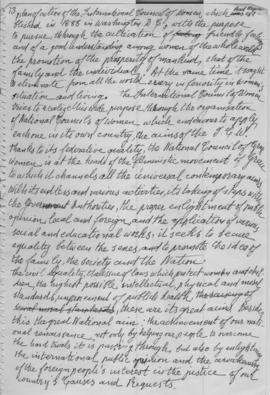 plan of action of the International Council of Women, which was es-
tablished in 1888 in Washington D.C., with the purpose
to pursue through the cultivation of friendly feel-
and of a good understanding among women of the whole world
the promotion of the prosperity of mankind, that of the
family and the individual. At the same time it sought
to eliminate from all the world every inferiority in human
situation and living. The International Council of Women
tries to realize this wide purpose through the organisation
of National Councils of Women which endeavour to apply
each one in its own country, the aims of the I.C.W.
thanks to its federative quality, the National Council of Greek
women, is at the head of the feministic movement of Greece
to which it channels all the universal contemporary aims
with its endless and various activities, its taking of steps with
the Government Authorities, the proper enlightment of public
opinion, local and foreign, and the application of various
social and educational works; it seeks to secure
equality between the sexes, and to promote the idea of
the family, the society and the Nation.
The civil equality, the issuing of laws which protect mothers and chil-
dren, the highest possible, intellectual, physical and moral
standards, improvement of public health,
these are its great aims besides
this the great National aim: the achievement of our nati-
onal renaissance, not only by helping our people to overcome
the hard trials it is passing through, but also by enlightening
the international public opinion and the awakening
of the foreign people's interest in the justice of our
Country's Causes and Requests.